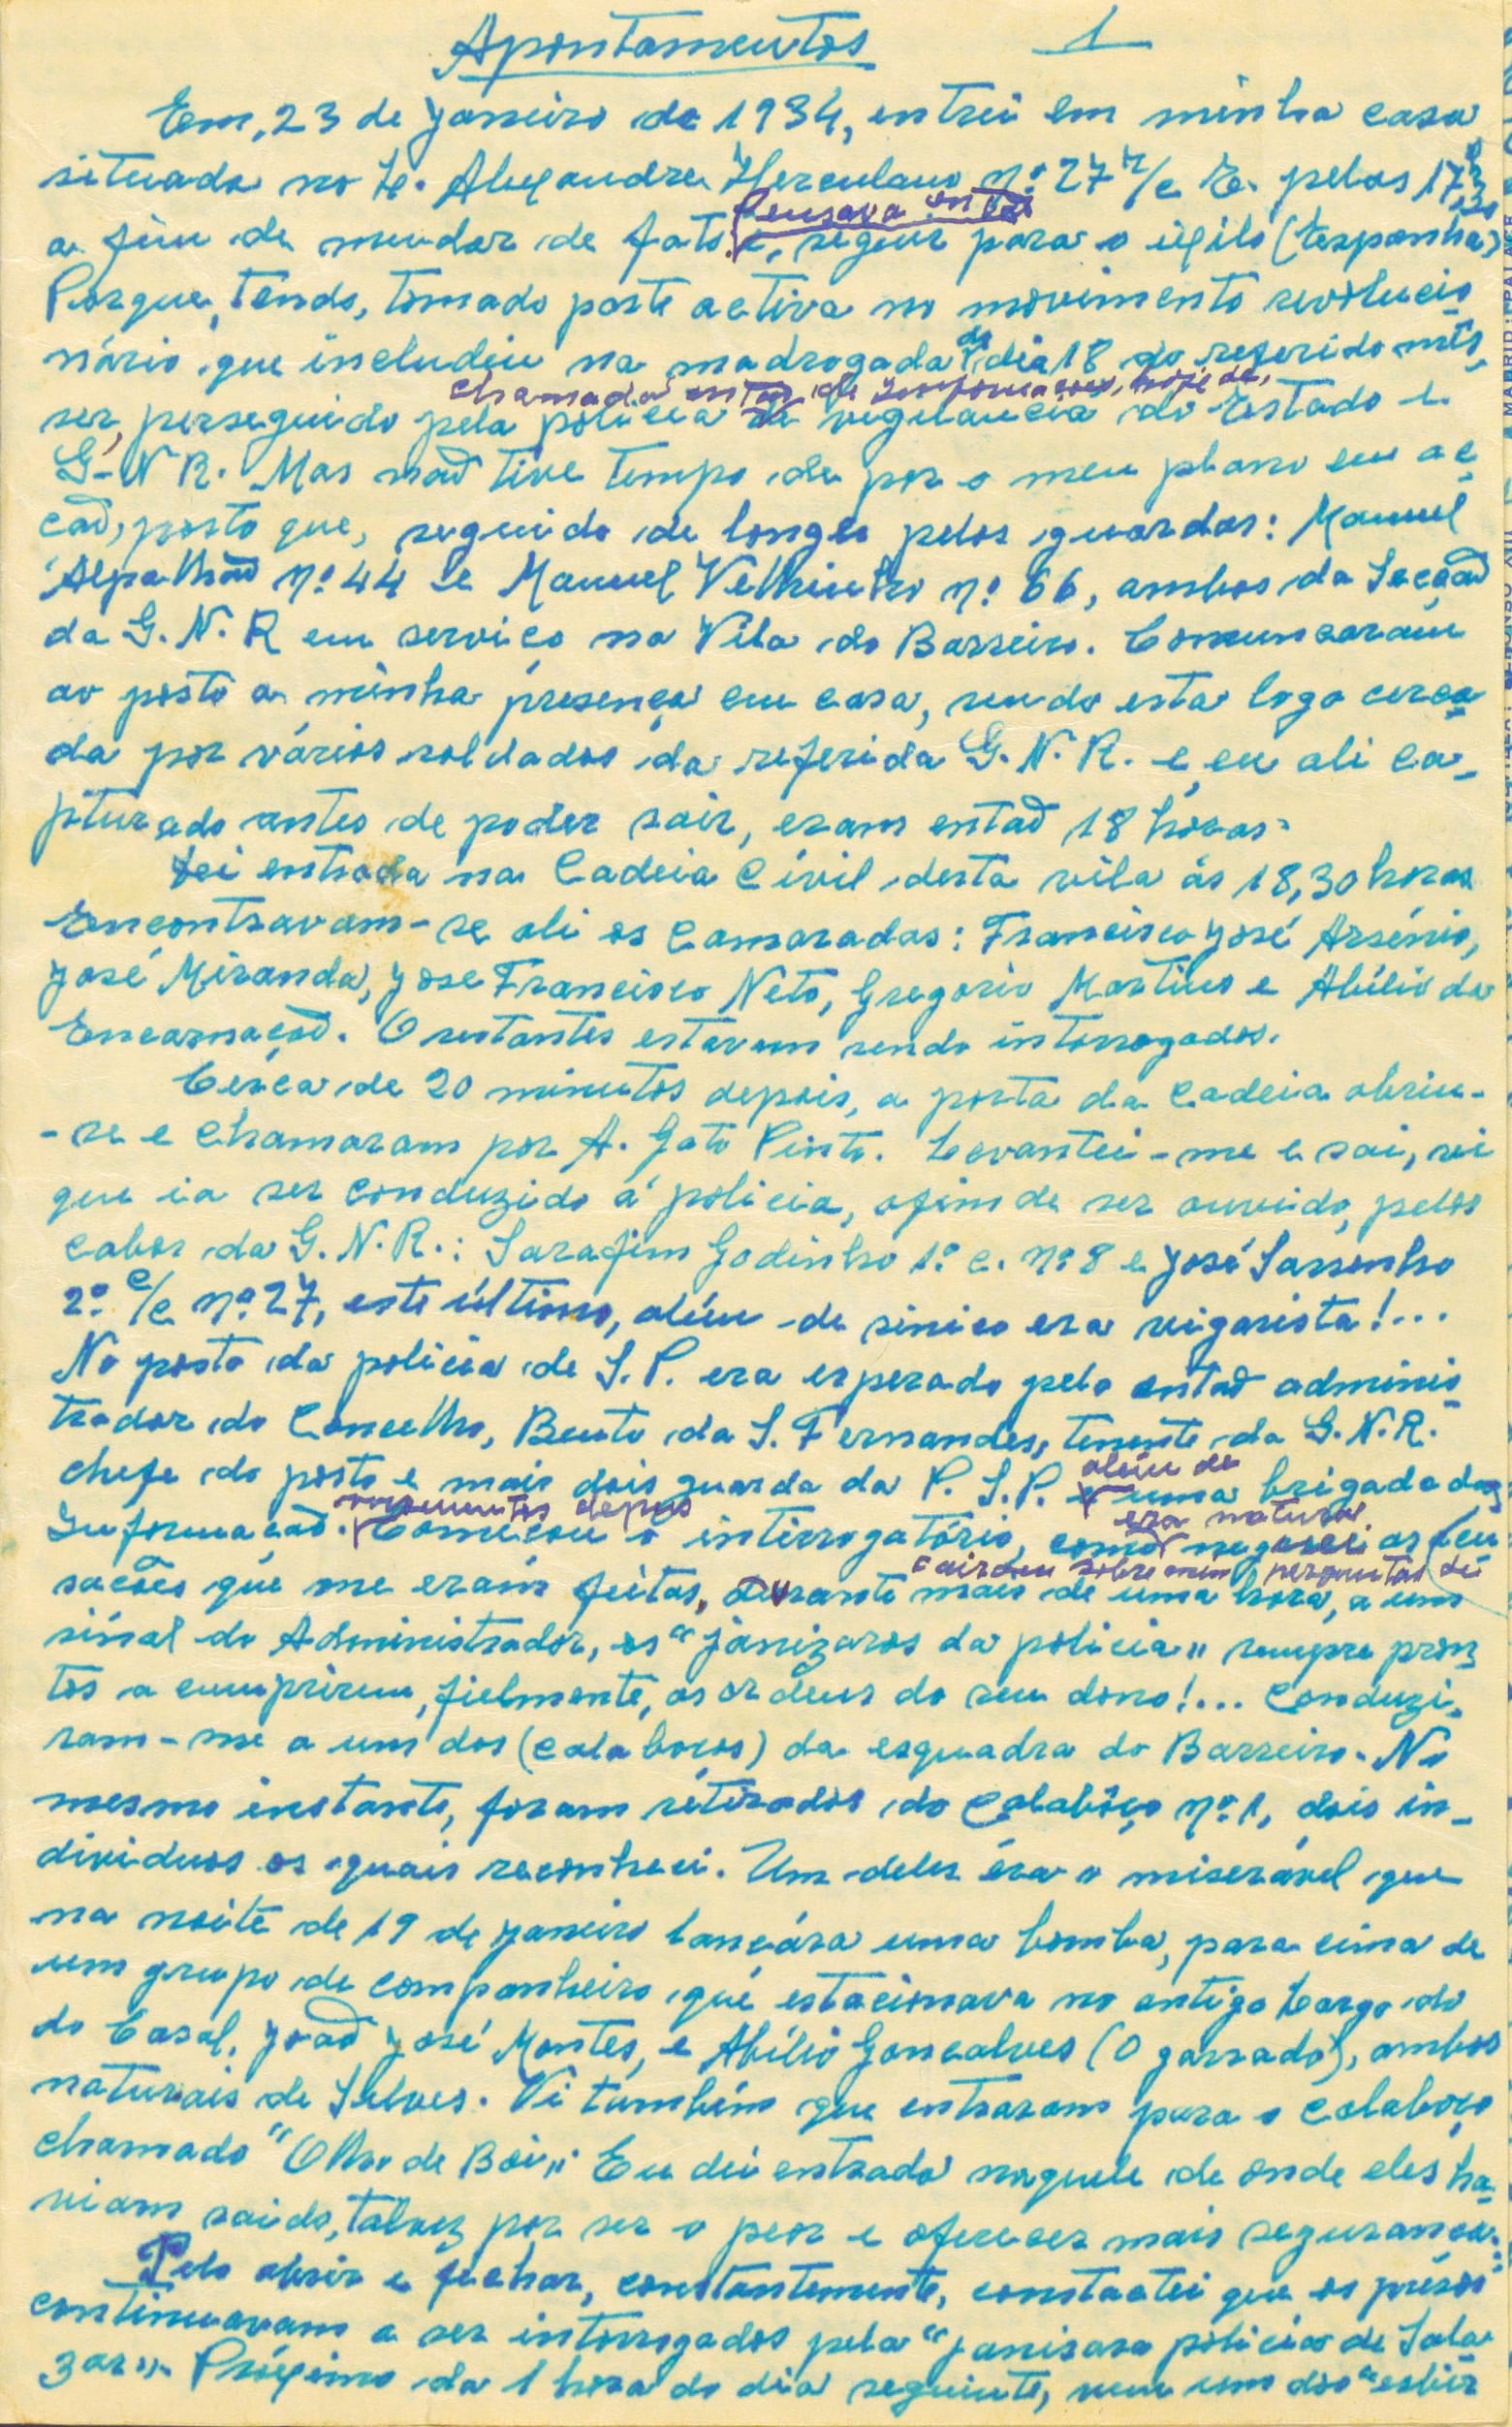 Apontamentos 1
Em, 23 de Janeiro de 1934, entrei em minha casa
situada no L. Alexandre Herculano nº 27 r/c E. pelas 17,30
pensava então
a fim de mudar de fato e, seguir para o exilo (Espanha)
Porque, tendo, tomado parte activa no movimento revolucio
nário que includiu na madrogada do dia 18 do referido mês,
chamada então de Informações, hoje de,
ser, perseguido pela policia de vegilancia do Estado e
G-N R. Mas naõ tive tempo de por o meu plano em ac
caõ, posto que, seguido de longe pelos guardas: Manuel
Alpalhaõ nº 44 e Manuel Velhinho nº 66, ambos da Secçaõ
da G. N. R em serviço na Vila do Barreiro. Comuncarám
ao posto a minha presença em casa, sendo esta logo cerca
da por vários soldados da referida G. N. R. e eu ali ca-
pturado antes de poder sair, eram entaõ 18 horas.
Dei entrada na Cadeia Civil desta vila ás 18,30 horas
Encontravam-se ali os Camaradas: Francisco José Arsénio,
José Miranda, José Francisco Neto, Gregorio Martins e Abilio da
Encarnaçaõ. O restantes estavam sendo intorrogados.
Cêrca de 20 minutos depois, a porta da Cadeia abriu-
-se e Chamaram por A. Gato Pinto. Levantei-me e sai, vi
que ia ser conduzido á policia, afim de ser ouvido, pelos
cabos da G. N. R.: Sarafim Godinho 1º c. nº 8 e José Sarronho
2º c/c nº 27, este último, além de sinico era vigarista!...
No posto da policia de S. P. era esperado pelo entaõ adminis
trador do Concelho, Bento da S. Fernandes, tenente da G. N. R.
além de
chefe do posto e mais dois guarda da P. S. P. e uma brigada das
momentos depois era natural
Informaçaõ. Começou o intirrogatório, como negasse as acu
cairam sobre mim perguntas de
sacões que me eram feitas, durante mais de uma hora, a um
sinal do Administrador, os "janizaros da policia" sempre pron
tos a cumprirem, fielmente, as ordens do seu dono!... Conduzi,
ram-me a um dos (calaboços) da esquadra do Barreiro. No
mesmo instante, foram retirados do Calabôço nº 1, dois in-
dividuos os quais reconheci. Um deles éra o miserável que
na noite de 19 de Janeiro lançára uma bomba, para cima de
um grupo de companheiro que estacionava no antigo Largo do
do Casal, Joaõ José Montes, e Abílio Gonçalves (O garrado), ambos
naturais de Silves. Vi também que entraram para o calaboço
chamado "Olho de Boi". Eu dei entrada naquele de onde eles ha-
viam saido, talvez por ser o peor e oferecer mais segurança.
Pelo abrir e fechar, constantemente, constactei que os prêsos
continuavam a ser intorrogados pela "janisara policia de Sala
zar". Próximo da 1 hora do dia seguinte, veiu um dos "esbir